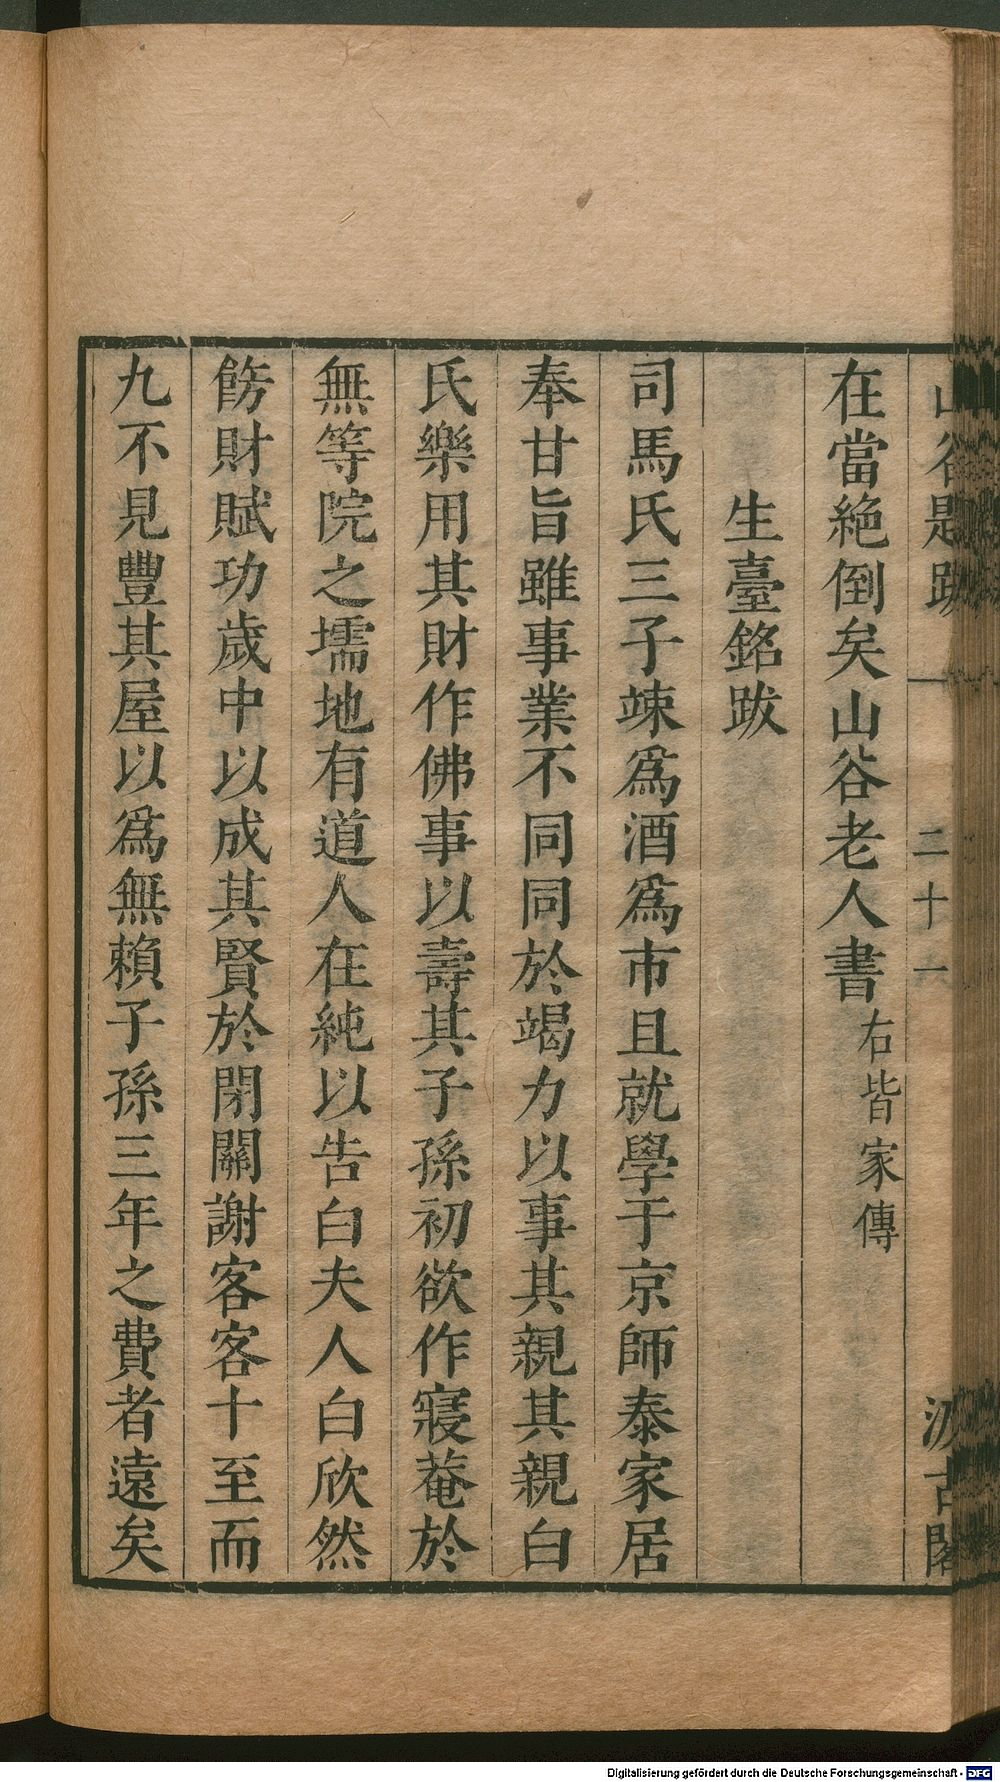 山谷題跋 一 二十一 汲古閣
在當絶倒矣山谷老人書右皆家傳
生臺銘跋
司馬氏三子竦爲酒爲市且就學于京師泰家居
奉甘旨雖事業不同同於竭力以事其親其親白
氏樂用其財作佛事以壽其子孫初欲作寢菴於
無等院之壖地有道人在純以告白夫人白欣然
餝財賦功歲中以成其賢於閉關謝客客十至而
九不見豐其屋以爲無賴子孫三年之費者遠矣
Digitalisierung gefördert durch die Deutsche Forschungsgemeinschaft - DFG